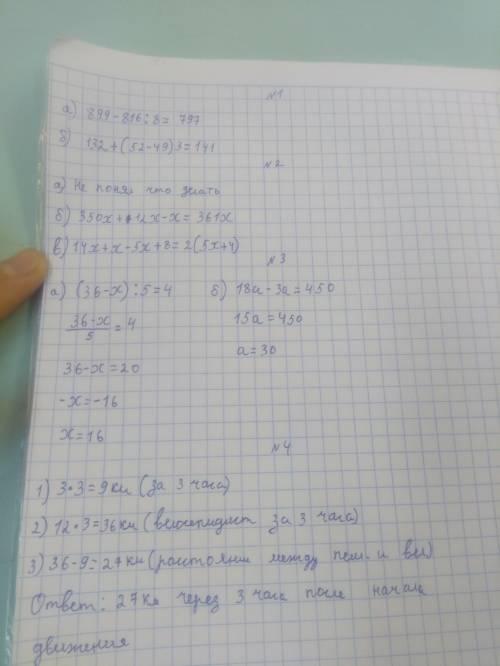 №1
а) 899-816:8= 797
б) 132+(52-49)3=141
№2
а) Не понял что делать
б) 350х+12х-х= 361х
в) 14х+х-5х+8=2(5х+4)
№3
а) (36-х):5=4 б) 18а-3а=450
36-х/5=4 15а=450
36-х=20 а=30
-х=-16
х=16
№4
1) 3•3=9км (за 3 часа)
2) 12•3=36км (велосепидист за 3 часа)
3) 36-9=27км (расстояни между пеш. и вел)
Ответ: 27км через 3 часа после начала
движения